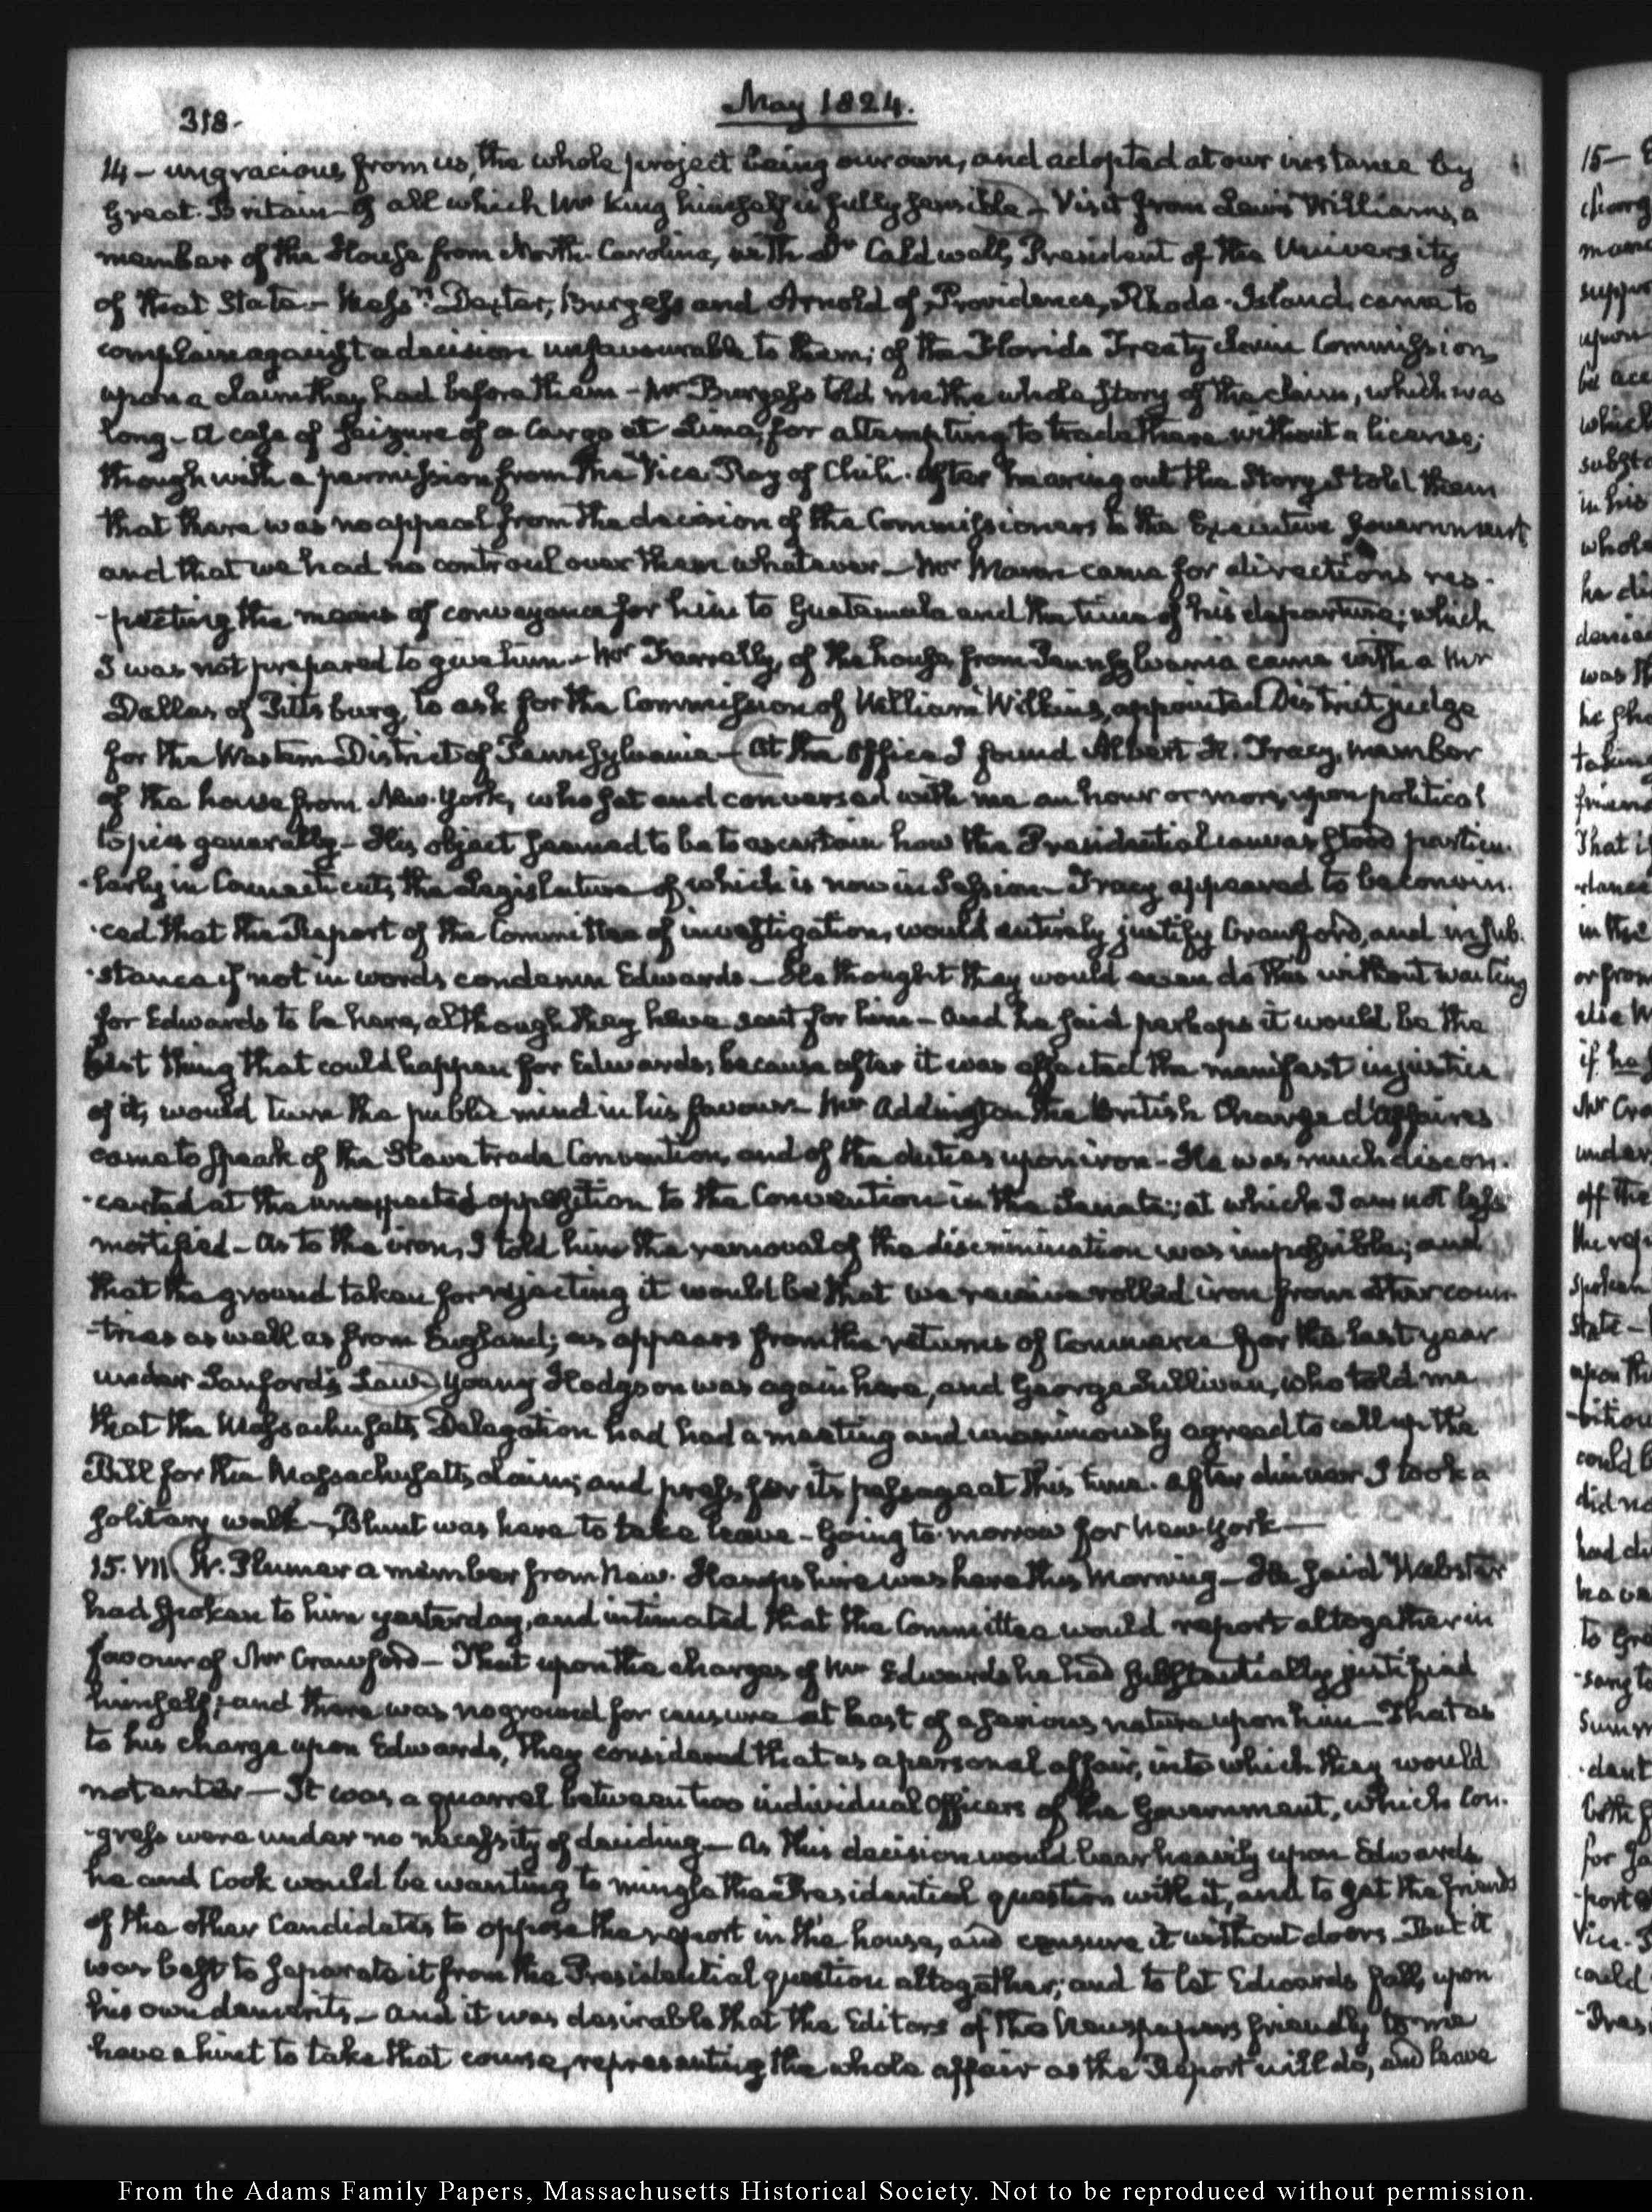 318-
May 1824.
14 — ungracious from us, the whole project being our own, and adopted at our instance by
Great-Britain — of all which Mr King himself is fully sensible — Visit from Lewis Williams, a
member of the House from North-Carolina, with Dr Caldwell, President of the University
of that State — Messrs Dexter, Burgess and Arnold of Providence, Rhode-Island, came to
complain against a decision unfavourable to them; of the Florida Treaty claim Commission,
upon a claim they had before them — Mr Burgess told me the whole story of the claim, which was
long — A case of seizure of a Cargo at Lima, for attempting to trade there without a license;
though with a permission from the Vice-Roy of Chili. After hearing out the Story I told them
that there was no appeal from the decision of the Commissioners to the Executive Government
and that we had no controul over them whatever — Mr Mann came for directions res-
-pecting the means of conveyance for him to Guatemala and the time of his departure; which
I was not prepared to give him — Mr Farrelly, of the house from Pennsylvania came with a Mr
Dallas of Pittsburg, to ask for the Commission of William Wilkins, appointed District judge
for the Western District of Pennsylvania — At the Office I found Albert H. Tracy, member
of the house from New-York, who sat and conversed with me an hour or more, upon political
topics generally — His object seemed to be to ascertain how the Presidential canvas stood particu-
-larly in Connecticut, the Legislature of which is now in Session — Tracy appeared to be convin-
-ced that the Report of the Committee of investigation, would entirely justify Crawford, and in sub-
-stance if not in words condemn Edwards — He thought they would even do this without waiting
for Edwards to be here, although they have sent for him — And he said perhaps it would be the
best thing that could happen for Edwards; because after it was effected the manifest injustice
of it, would turn the public mind in his favour — Mr Addington the British Charge d'Affaires
came to speak of the Slave trade Convention, and of the duties upon iron — He was much discon-
-certed at the unexpected opposition to the Convention in the Senate; at which I am not less
mortified — As to the iron, I told him the removal of the discrimination was impossible; and
that the ground taken for rejecting it would be that we receive rolled iron from other coun-
-tries as well as from England; as appears from the returns of Commerce for the last year
under Sanford's Law — Young Hodgson was again here, and George Sullivan, who told me
that the Massachusetts Delegation had had a meeting and unanimously agreed to call up the
Bill for the Massachusetts claim; and press for its passage at this time. After dinner I took a
solitary walk — Blunt was here to take leave — Going to-morrow for New-York —
15. VII W. Plumer a member from New-Hampshire was here this Morning — He said Webster
had spoken to him yesterday, and intimated that the Committee would report altogether in
favour of Mr Crawford — That upon the charges of Mr Edwards he had substantially justified
himself; and there was no ground for censure at least of a serious nature upon him — That as
to his charge upon Edwards, they considered that as a personal affair, into which they would
not enter — It was a quarrel between two individual Officers of the Government, which Con-
-gress were under no necessity of deciding — As this decision would bear heavily upon Edwards
he and Cook would be wanting to mingle the Presidential question with it, and to get the friends
of the other Candidates to oppose the report in the house, and censure it without doors — But it
was best to separate it from the Presidential question altogether; and to let Edwards fall, upon
his own demerits — and it was desirable that the Editors of the Newspapers friendly to me
have a hint to take that course, representing the whole affair as the Report will do, and leave
From the Adams Family Papers, Massachusetts Historical Society. Not to be reproduced without permission.